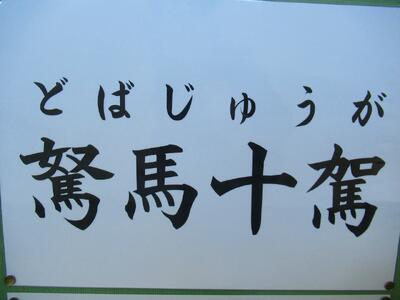 どばじゅうが
駑馬十駕